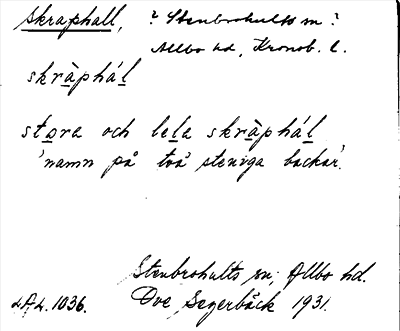 Skraphall, ? Stenbrohults sn ?
Allbo hd, Kronob. l.
skràphál
stora och lela skràphál
'namn på två steniga backar'.
Stenbrohults sn, Allbo hd.
LAL. 1036. Ove Segerbäck 1931.